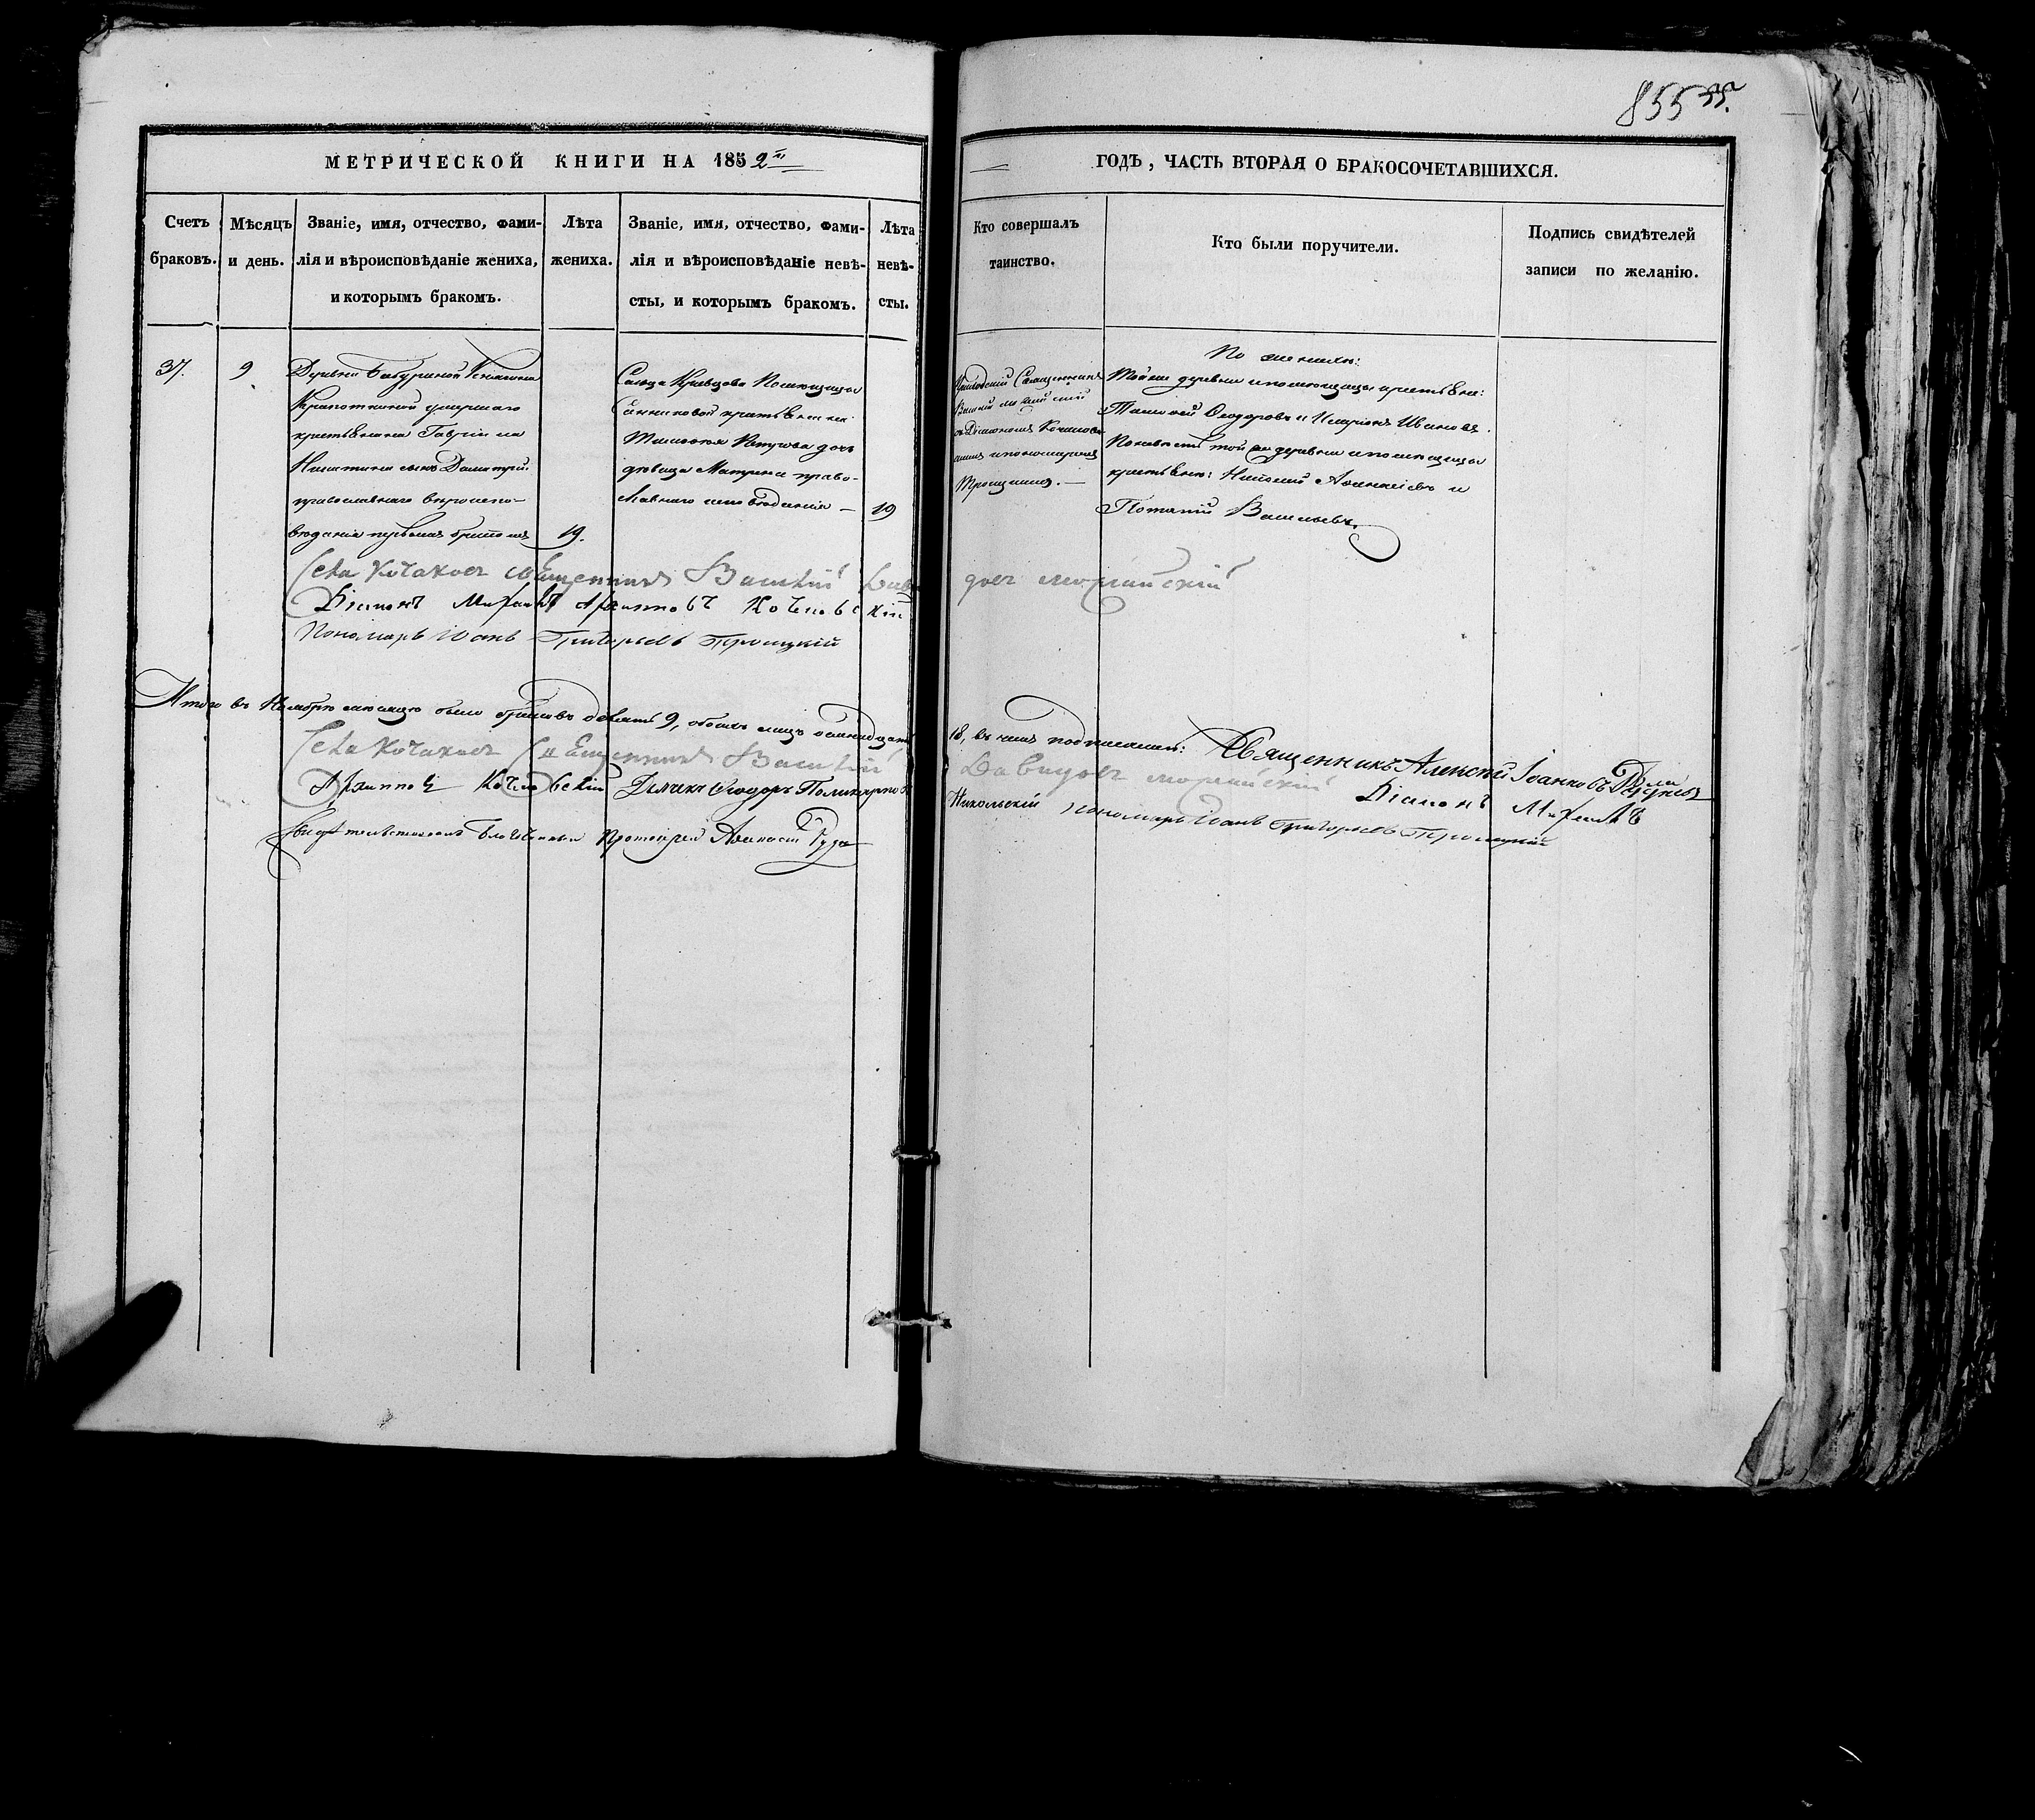 855
МЕТРИЧЕСКОЙ КНИГИ НА 1852й
ГОДЪ, ЧАСТЬ ВТОРАЯ О БРАКОСОЧЕТАВШИХСЯ.
Счетъ браковъ.
Мѣсяцъ и день.
Званіе, имя, отчество, фами-
лія и вѣроисповѣданіе жениха,
и которымъ бракомъ.
Лѣта
жениха.
Званіе, имя, отчество, фами-
лія и вѣроисповѣданіе невѣ-
сты, и которымъ бракомъ.
Лѣта
невѣ-
сты.
Кто совершалъ
таинство.
Кто были поручители.
Подпись свидѣтелей
записи по желанію.
37.
9
Деревни Бабуриной Княжны
Крапоткиной умершаго
крестьянина Гавріила
Никитина сынъ Димитрій
православнаго вѣроиспо-
вѣданія первымъ бракомъ
19.
Сельца Кривцова Помѣщицы
крестьянина
дочь
дѣвица Матрона право-
славнаго исповѣданія —
19
Приходскій Священникъ
Василій
съ Діакономъ
и пономаремъ
Троицкимъ. —
По женихѣ:
Той же деревни и помѣщицы крестьяне:
Тимофей Ѳеодоровъ и Иларіонъ Ивановъ.
По невѣстѣ той же деревни и помѣщицы
крестьяне: Аѳанасіевъ и
Потапій Васильевъ.
Села Кочаковъ священникъ Василій Давы
довъ можайскій
Діаконъ Михаилъ Архипповъ
Пономарь Иванъ Григорьевъ Троицкій
Итого въ Ноябрѣ мѣсяцѣ было браковъ девять 9, обоихъ лицъ осмнадцать
18, въ чемъ подписались: Священникъ Алексѣй Іоанновъ
Села Кочаковъ Священникъ Василій
Давыдовъ можайскій Діаконъ Михаилъ
Архипповъ Дьячекъ Ѳеодоръ Поликарповъ
Никольскій пономарь Иванъ Григорьевъ Троицкій
Свидѣтельствовалъ Благочинный Протоіерей Аѳанасій